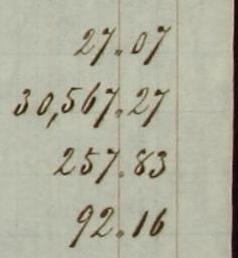 27.07
30,567.27
257.83
92.16